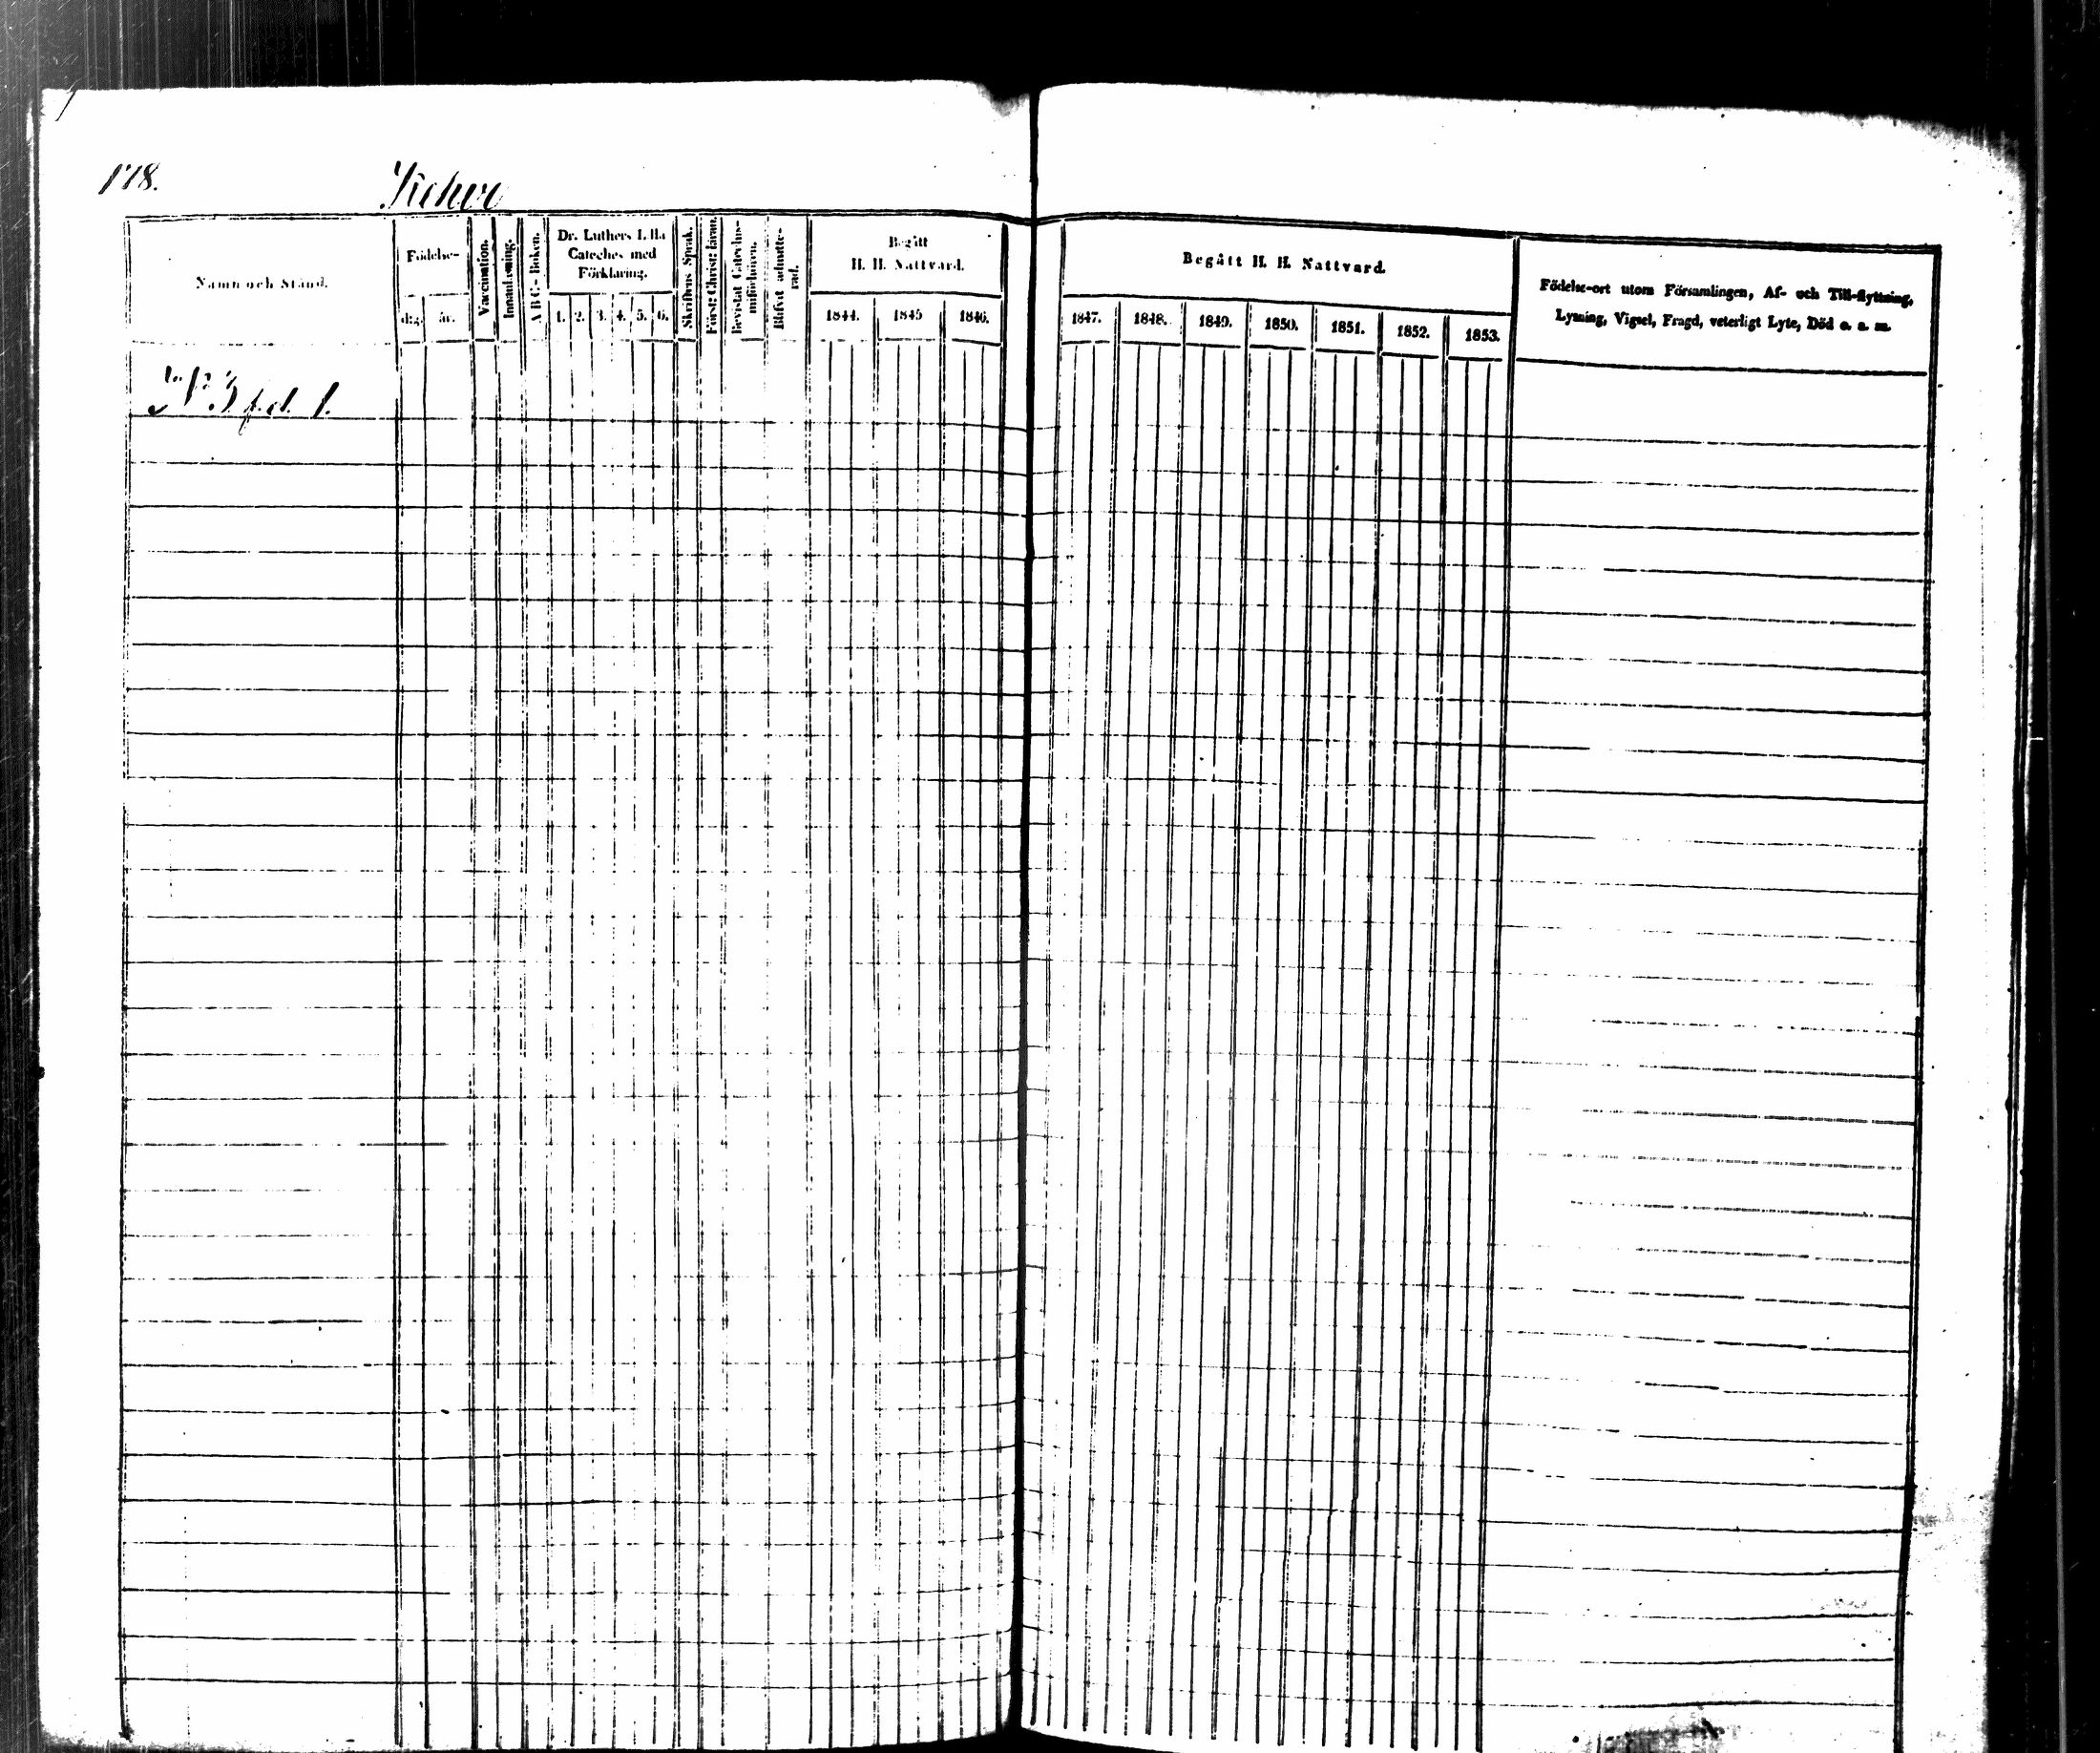 178.
Namn och Stånd.
Födelse-
dag.
år.
Vaccination.
Innanläsning.
A B C - Boken.
Dr. Luthers L:lla
Cateches med
Förklaring.
1. 2. 3. 4. 5. 6.
Skriftens Språk.
Först: Christ: läran.
Bevistat Catechis-
miförhören.
Blifvit admitte-
rad.
Begått
H. H. Nattvard.
1844. 1845 1846.
Begått H. H. Nattvard.
1847. 1848. 1849. 1850. 1851. 1852. 1853.
Födelse-ort utom Församlingen, Af- och Till-flyttning,
Lysning, Vigsel, Frägd, veterligt Lyte, Död o. s. m.
N:o 3 f.d. 1.